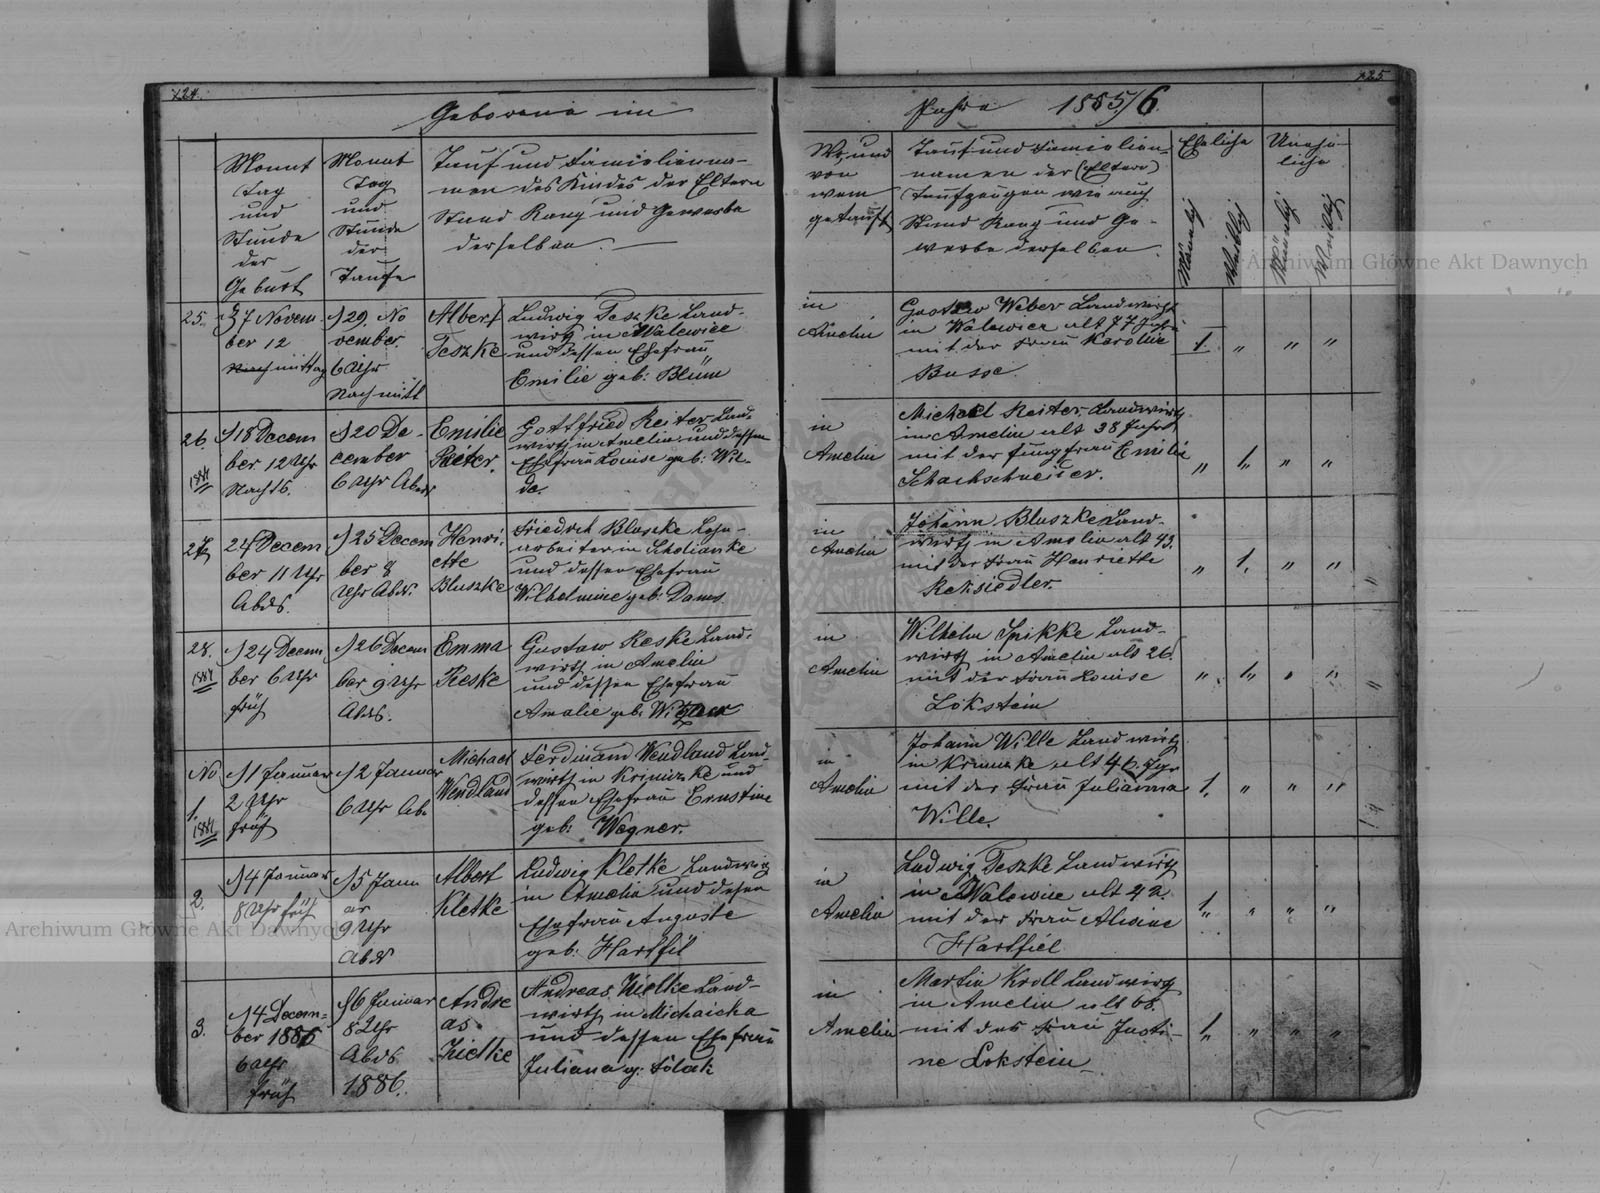 124.
125.
Geborene im
Jahre 1885/6.
Monat
Tag
und
Stunde
der
Geburt
Monat
Tag
und
Stunde
der
Taufe
Tauf und Familienna-
men des Kindes der Eltern
Stand Rang und Gewerbe
derselben.
Wo und
von
wem
getauft
Tauf und Familien-
namen der (Eltern)
Taufzeugen wie auch
Stand Rang und Ge-
werbe derselben
Eheliche
Männlich
Weiblich
Unehe-
liche
Männlich
Weiblich
25.
27 Novem
ber 12
mittag
29. No
vember
6 Uhr
Nachmitt
Albert
Teszke
Ludwig Teszke Land-
wirth in Walewice
und dessen Ehefrau
Emilie geb: Blüm
in
Amelin
Gustaw Weber Landwirth
in Walewice alt 77 Jahr
mit der Frau Karoline
Busse.
1. " " "
26.
1884
18 Decem
ber 12 Uhr
Nachts.
20 De-
cember
6 Uhr Abds
Emilie
Reiter.
Gottfried Reiter Land-
wirth in Amelin und dessen
Ehefrau Louise geb: Wil-
de.
in
Amelin
Michael Reiter, Landwirth
in Amelin alt 38 Jahr
mit der Jungfrau Emilie
Schachschneider.
" 1. " "
27.
24 Decem
ber 11 Uhr
Abds.
25 Decem
ber 8
Uhr Abds.
Henri-
ette
Bluszke
Friedrich Bluszke
arbeiter in
und dessen Ehefrau
Wilhelmine geb: Dams
in
Amelin
Johann Bluszke Land-
wirth in Amelin alt 43.
mit der Frau Henriette
Reksiedler.
" 1. " "
28.
1884
24 Decem
ber 6 Uhr
früh
26 Decem
ber 9 Uhr
Abds.
Emma
Reske
Gustaw Reske Land-
wirth in Amelin
und dessen Ehefrau
Amalie geb:
in
Amelin
Wilhelm Spikke Land-
wirth in Amelin alt 26.
mit der Frau Louise
Lokstein
" 1. " "
No
1.
1884
1 Januar
2 Uhr
früh
2 Januar
6 Uhr Ab.
Michael
Wendland
Ferdinand Wendland Land-
wirth in und
dessen Ehefrau Ernstine
geb: Wegner.
in
Amelin
Johann Wille Landwirth
in alt 46. Jhr
mit der Frau Julianna
Wille.
1. " " "
2.
4 Januar
8 Uhr früh
5 Janu
ar
9 Uhr
Abds
Albert
Kletke
Ludwig Kletke Landwirth
in Amelin und dessen
Ehefrau Auguste
geb: Hartfil
in
Amelin
Ludwig Teszke Landwirth
in Walewice alt 42.
mit der Frau Alwine
Hartfiel
1. " " "
3.
14 Decem-
ber 1885
6 Uhr
früh
6 Januar
8 Uhr
Abds.
1886.
Andre
as
Zielke
Andreas Zielke Land-
wirth in Michaicka
und dessen Ehefrau
Juliana g: Polak
in
Amelin
Martin Kroll Landwirth
in Amelin alt 68.
mit der Frau Justi-
ne Lokstein
1. " " "
Archiwum Główne Akt Dawnych
Archiwum Główne Akt Dawnych